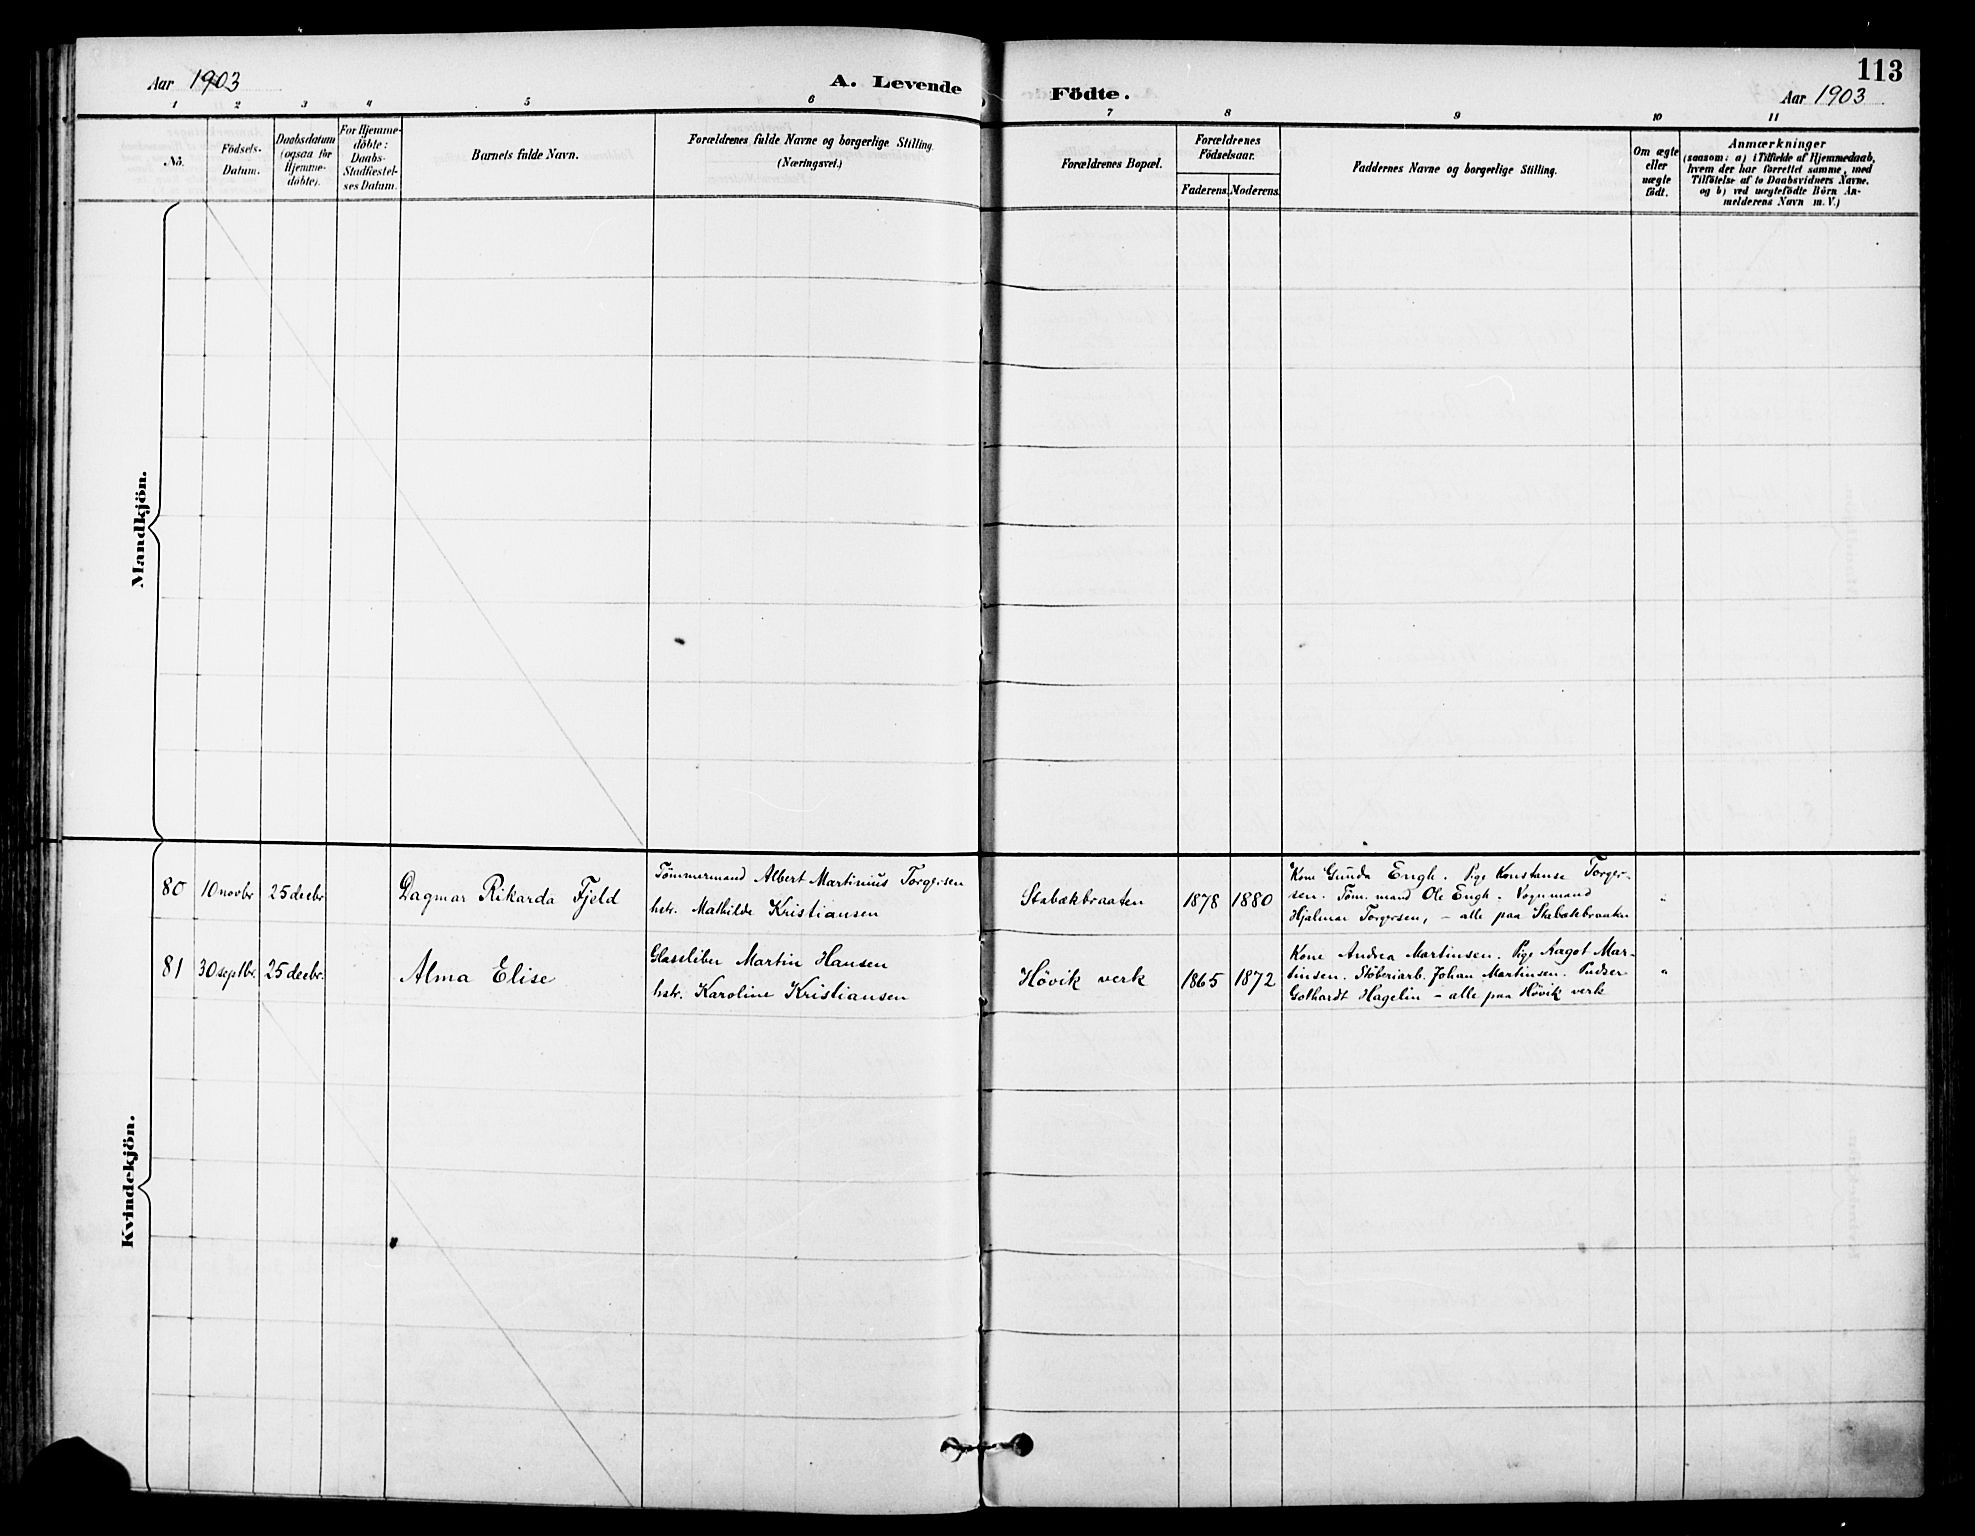 Aar 1903
A. Levende
Födte.
113
Aar 1903
1 2 3 4 5 6 7 8 9 10 11
No.
Födsels-
Datum.
Daabsdatum
(ogsaa for
Hjemme-
døbte).
For Hjemme-
döbte:
Daabs-
Stadfæstel-
ses Datum.
Barnets fulde Navn.
Forældrenes fulde Navne og borgerlige Stilling.
(Næringsvei.)
Forældrenes Bopæl.
Forældrenes
Födselsaar.
Faderens. Moderens.
Faddernes Navne og borgerlige Stilling.
Om ægte
eller
uægte
født.
Anmærkninger
(saasom: a) i Tilfælde af Hjemmedaab,
hvem der har forrettet samme, med
Tilföielse af to Daabsvidners Navne,
og b) ved uægtefödte Börn An-
melderens Navn m. V.)
Mandkjön.
Kvindekjön.
80 10 novbr 25 decbr Dagmar Rikarda Fjeld
Tömmermand Albert Martinius Torgersen
hstr. Mathilde Kristiansen
Stabækbraaten 1878 1880
Kone Gunda Engh. Pige Konstanse Torger-
sen. Töm.mand Ole Engh. Vognmand
Hjalmar Torgersen, – alle paa Stabækbraaten
"
81 30 septbr. 25 decbr. Alma Elise
Glassliber Martin Hansen
hstr. Karoline Kristiansen
Hövik verk 1865 1872
Kone Andrea Martinsen. Pige Ragot Mar-
tinsen. Stöberiarb. Johan Martinsen. Pudser
Gothardt Hagelin – alle paa Hövik verk
"